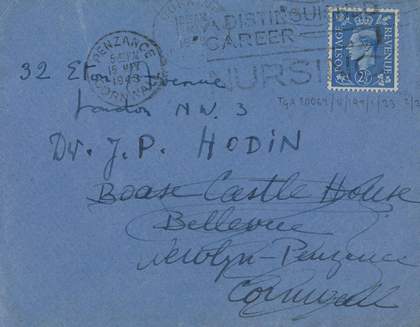 PENZANCE
CORNWALL
1948
A DISTINGUISHED
CAREER
NURSING
POSTAGE
REVENUE
2½
32 Avenue
London N.W. 3
Dr. J. P. HODIN
Boase Castle House
Bellevue
Newlyn-Penzance
Cornwall